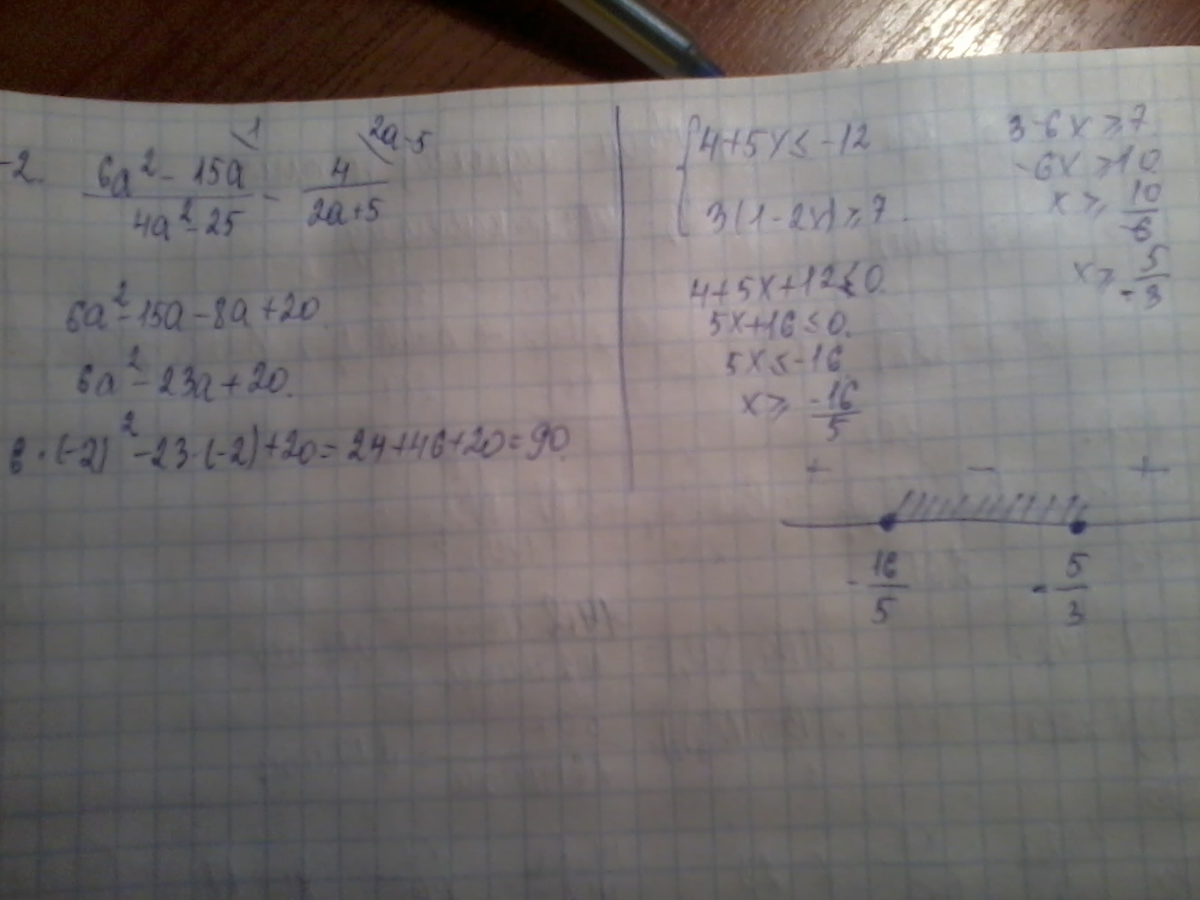 -2. \frac{6a^2 - 15a}{4a^2 - 25} \ ^{\backslash 1} - \frac{4}{2a+5} \ ^{\backslash 2a-5}
6a^2 - 15a - 8a + 20
6a^2 - 23a + 20.
6 · (-2)^2 - 23 · (-2) + 20 = 24 + 46 + 20 = 90
{ 4 + 5x ≤ -12
3(1 - 2x) ≥ 7
4 + 5x + 12 ≤ 0
5x + 16 ≤ 0.
5x ≤ -16
x ≥ \frac{-16}{5}
3 - 6x ≥ 7
-6x ≥ 10
x ≥ \frac{10}{-6}
x ≥ -\frac{5}{3}
+ − +
-\frac{16}{5} -\frac{5}{3}